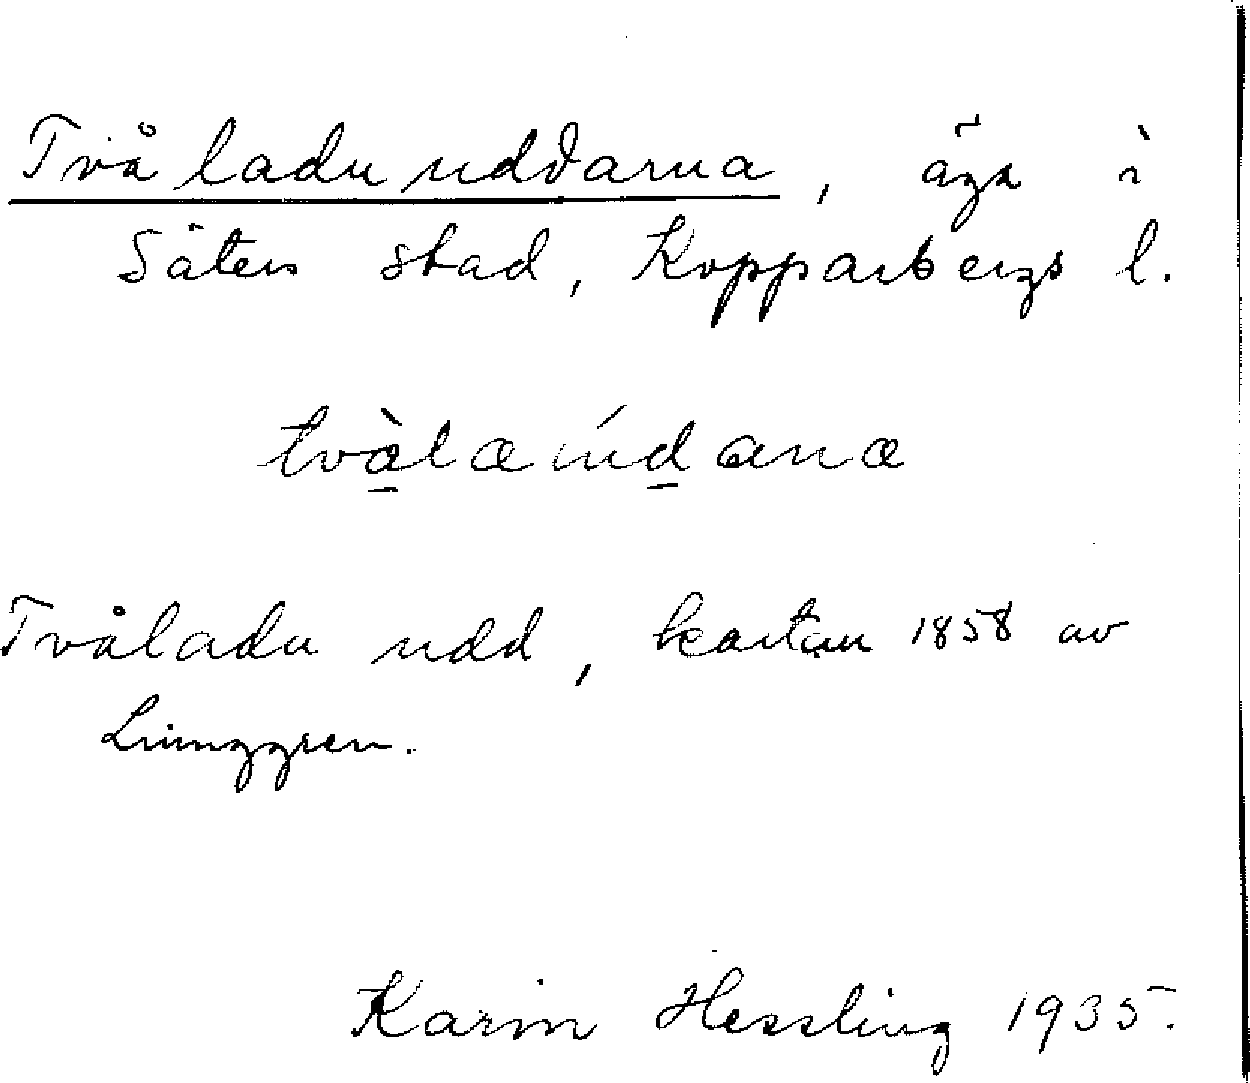 Tvåladuuddarna, äga i
Säters stad, Kopparbergs l.
tvàlaúdana
Tvåladu udd, kartan 1858 av
Ljunggren.
Karin Hessling 1935.